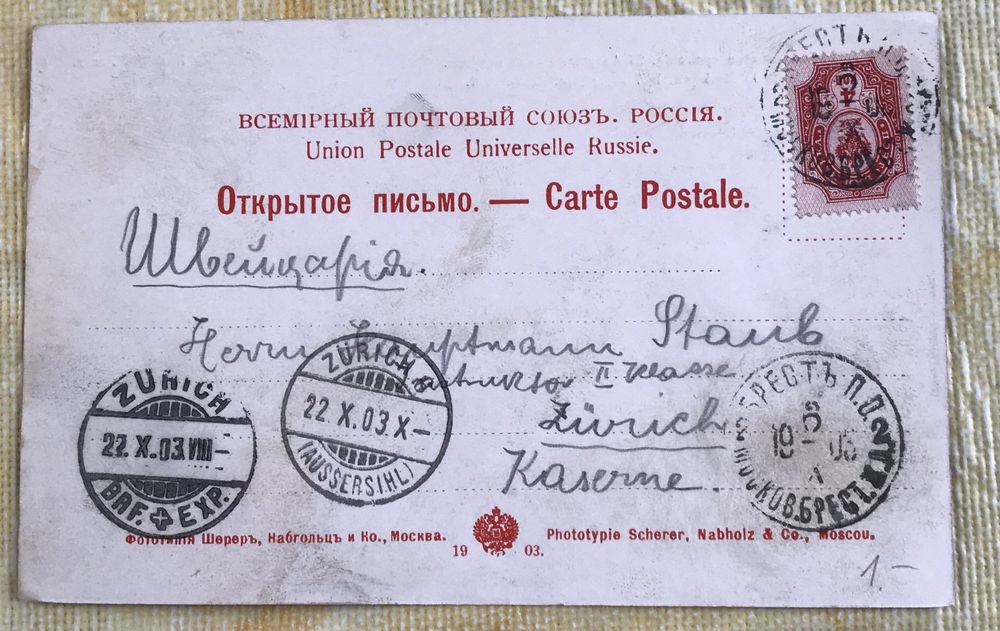 ВСЕМІРНЫЙ ПОЧТОВЫЙ СОЮЗЪ. РОССІЯ.
Union Postale Universelle Russie.
Открытое письмо. — Carte Postale.
Швейцарія.
Herrn Hauptmann Staub
II Klasse
Zürich
Kaserne.
ZÜRICH
22.X.03.VIII–
BRF. EXP.
ZÜRICH
22.X.03.X–
(AUSSERSIHL)
БРЕСТЪ П.О.
МОСКОВ.БРЕСТ.
Фототипія Шереръ, Набгольцъ и Ко., Москва.
19 03.
Phototypie Scherer, Nabholz & Co., Moscou.
1–